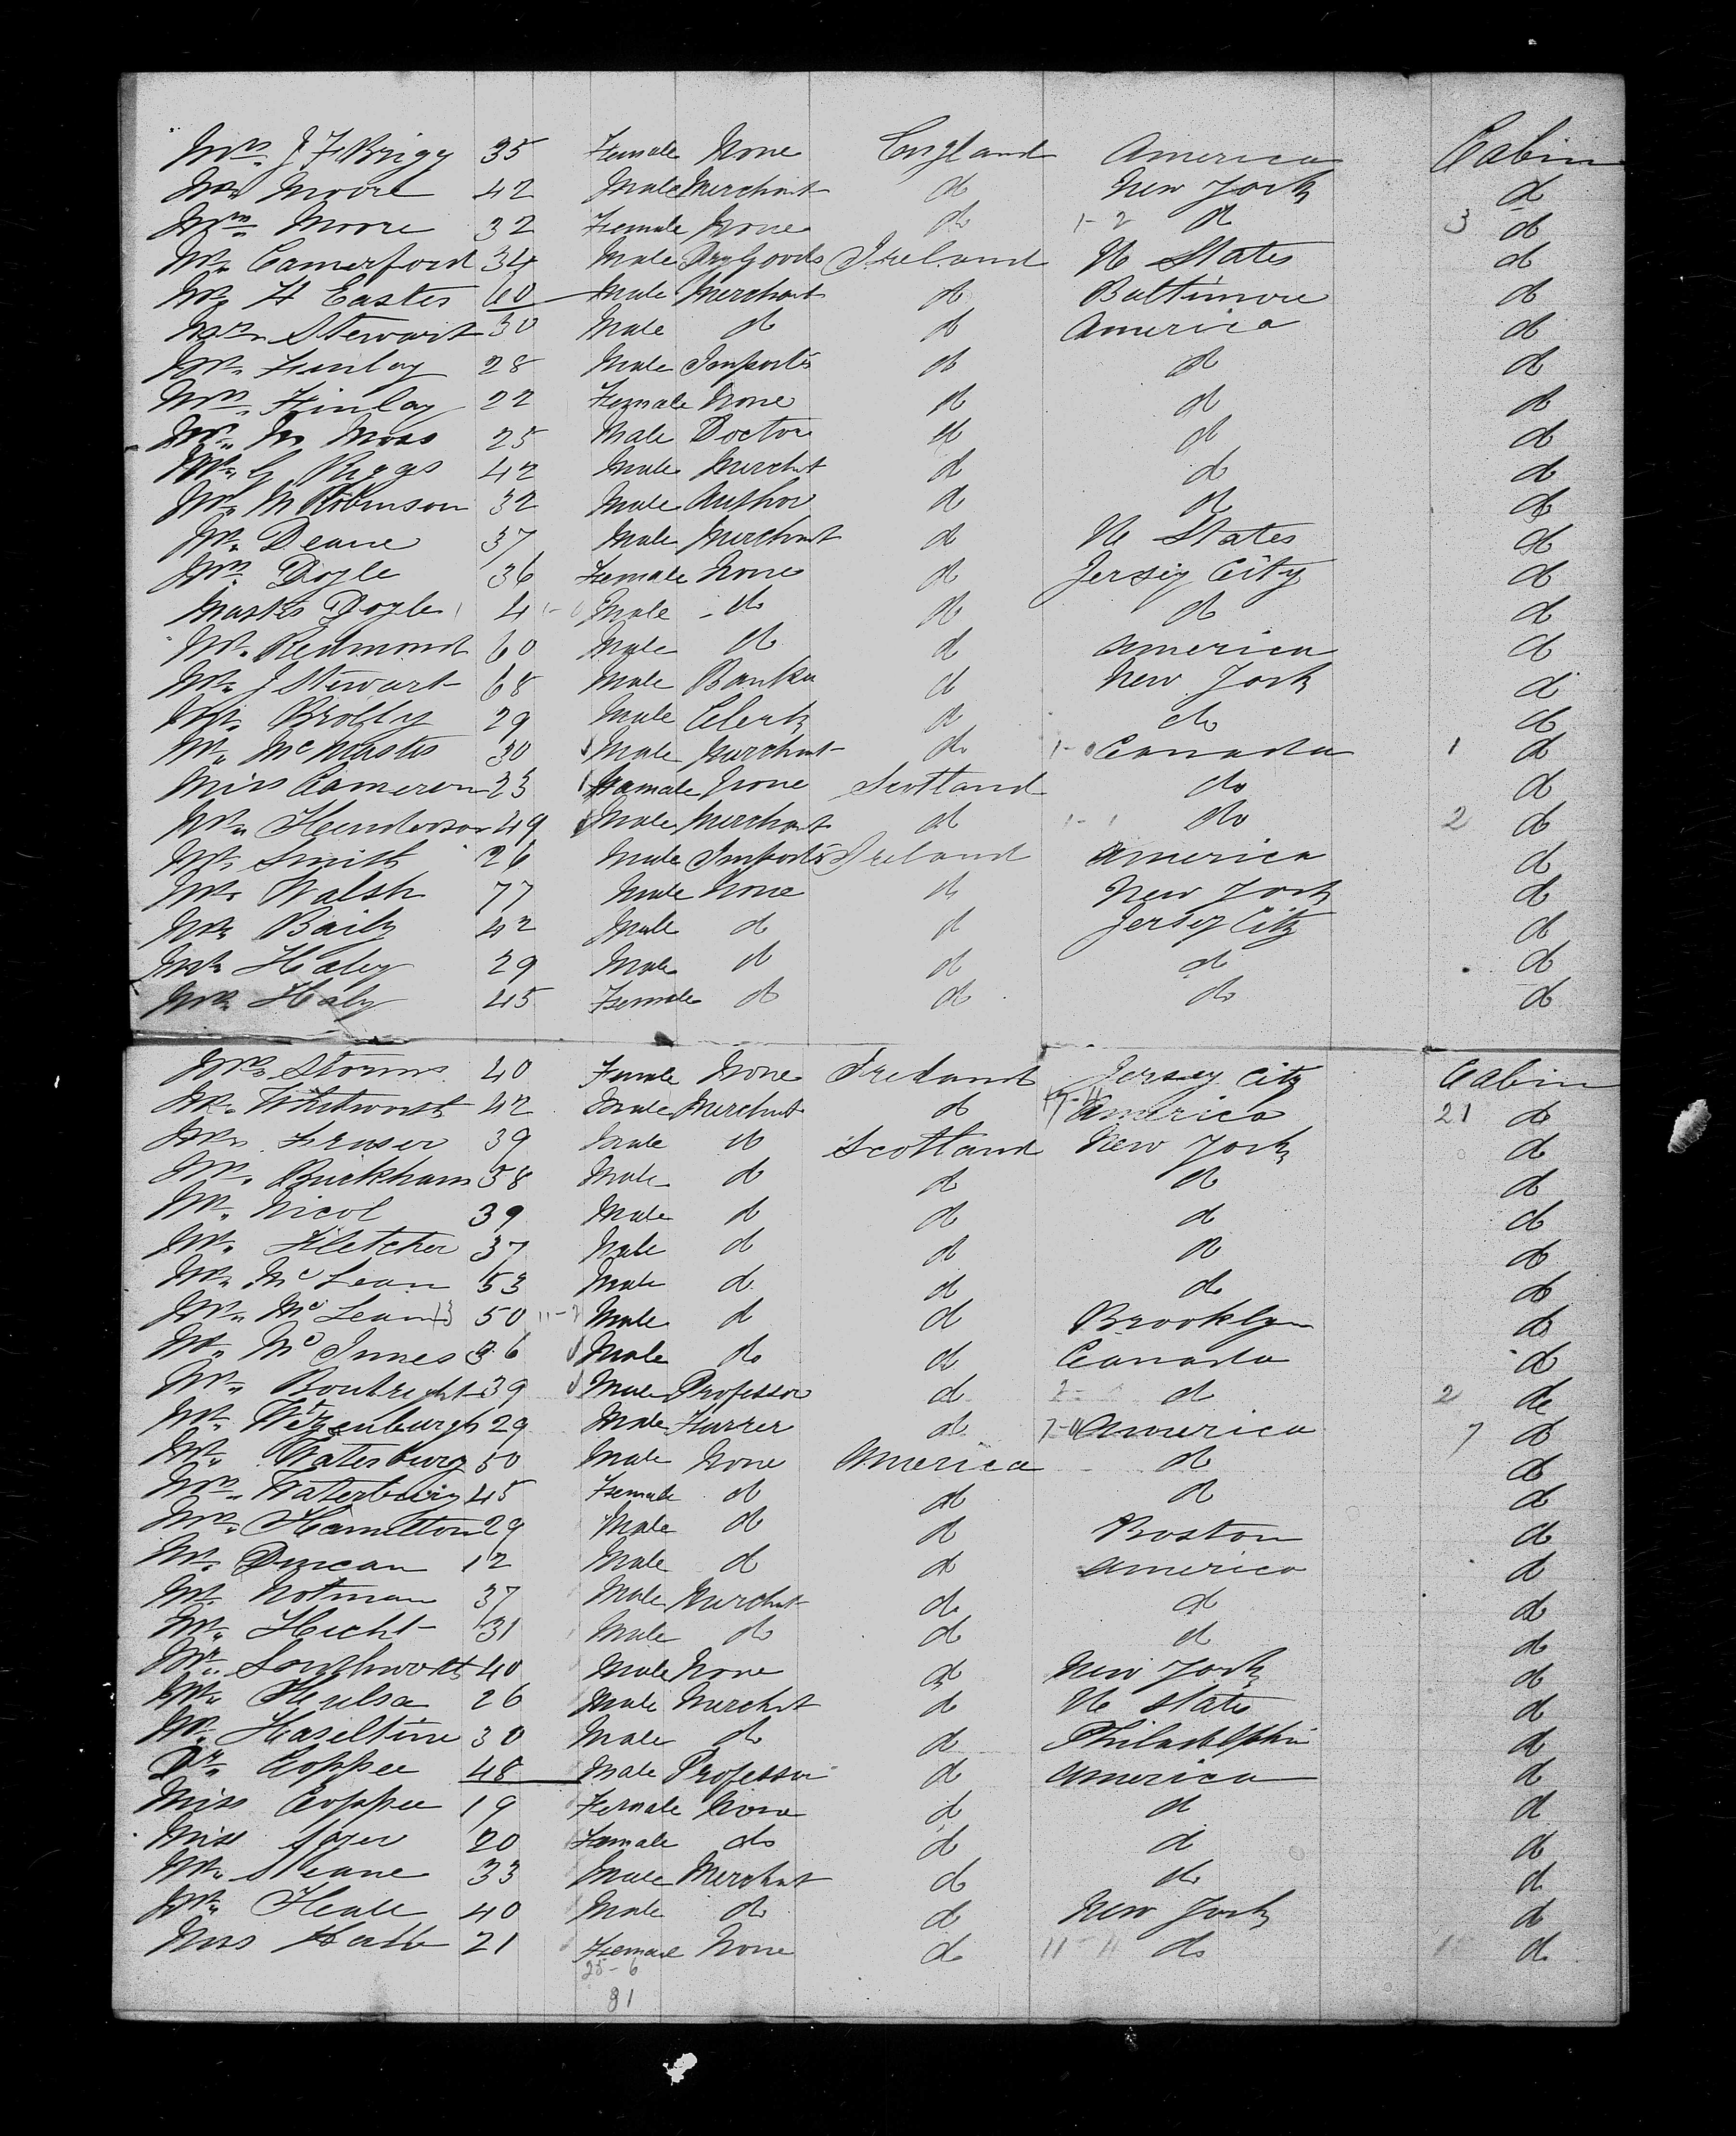 Mrs. J F Brigg 35 Female None England America Cabin
Mr Moore 42 Male Merchant do New York do
Mrs. Moore 32 Female None do 1-2 do 3 do
Mr. Camerford 34 Male Dry Goods Ireland U States do
Mr. H Easter 60 Male Merchant do Baltimore do
Stewart 30 Male do do America do
Mr. Finlay 28 Male Importer do do do
Mrs. Finlay 22 Female None do do do
Mr. M Moss 25 Male Doctor do do do
Mr. G Riggs 42 Male Mercht do do do
Mr. M Robinson 32 Male Author do do do
Mr. Deane 37 Male Merchant do U States do
Mrs. Doyle 36 Female None do Jersey City do
Master Doyle 4 Male do do do do
Mr. Redmond 60 Male do do America do
Mr. J Stewart 68 Male Banker do New York do
Mr. Brolly 29 Male Clerk do do do
Mr. McMaster 30 Male Merchant do 1-0 Canada 1 do
Miss Cameron 23 Female None Scotland do do
Mr. Henderson 49 Male Merchant do 1-1 do 2 do
Mr. Smith 26 Male Importer Ireland America do
Mr. Walsh 77 Male None do New York do
Mr. Baily 42 Male do do Jersey City do
Mr. Haley 29 Male do do do do
Haly 45 Female do do do do
Mrs. Storms 40 Female None Ireland Jersey City Cabin
Mr. Whitworth 42 Male Merchant do 17-4 America 21 do
Mr. Fraser 39 Male do Scotland New York do
Mr. Buckham 38 Male do do do do
Mr. Nicol 39 Male do do do do
Mr. Fletcher 37 Male do do do do
Mr. McLean 53 Male do do do do
Mr. McLean 50 Male do do Brooklyn do
Mr. McInnes 36 Male do do Canada do
Mr. Boutright 39 Male Professor do do 2 do
Mr. Witzenburgh 29 Male Furrer do 7-0 America 7 do
Mr. Waterbury 50 Male None America do do
Mrs. Waterbury 45 Female do do do do
Hamilton 29 Male do do Boston do
Mr. Duncan 12 Male do do America do
Mr. Notman 37 Male Merchant do do do
Mr. Hecht 31 Male do do do do
Mr. Southworth 40 Male None do New York do
Mr. Hulsa 26 Male Mercht do U States do
Mr. Haseltine 30 Male do do Philadelphia do
Dr. Coppee 48 Male Professor do America do
Miss Coppee 19 Female None do do do
Miss 20 Female do do do do
Mr. Sloane 33 Male Merchant do do do
Mr. Heale 40 Male do do New York do
21 Female None do 11-4 do do
25-6
31